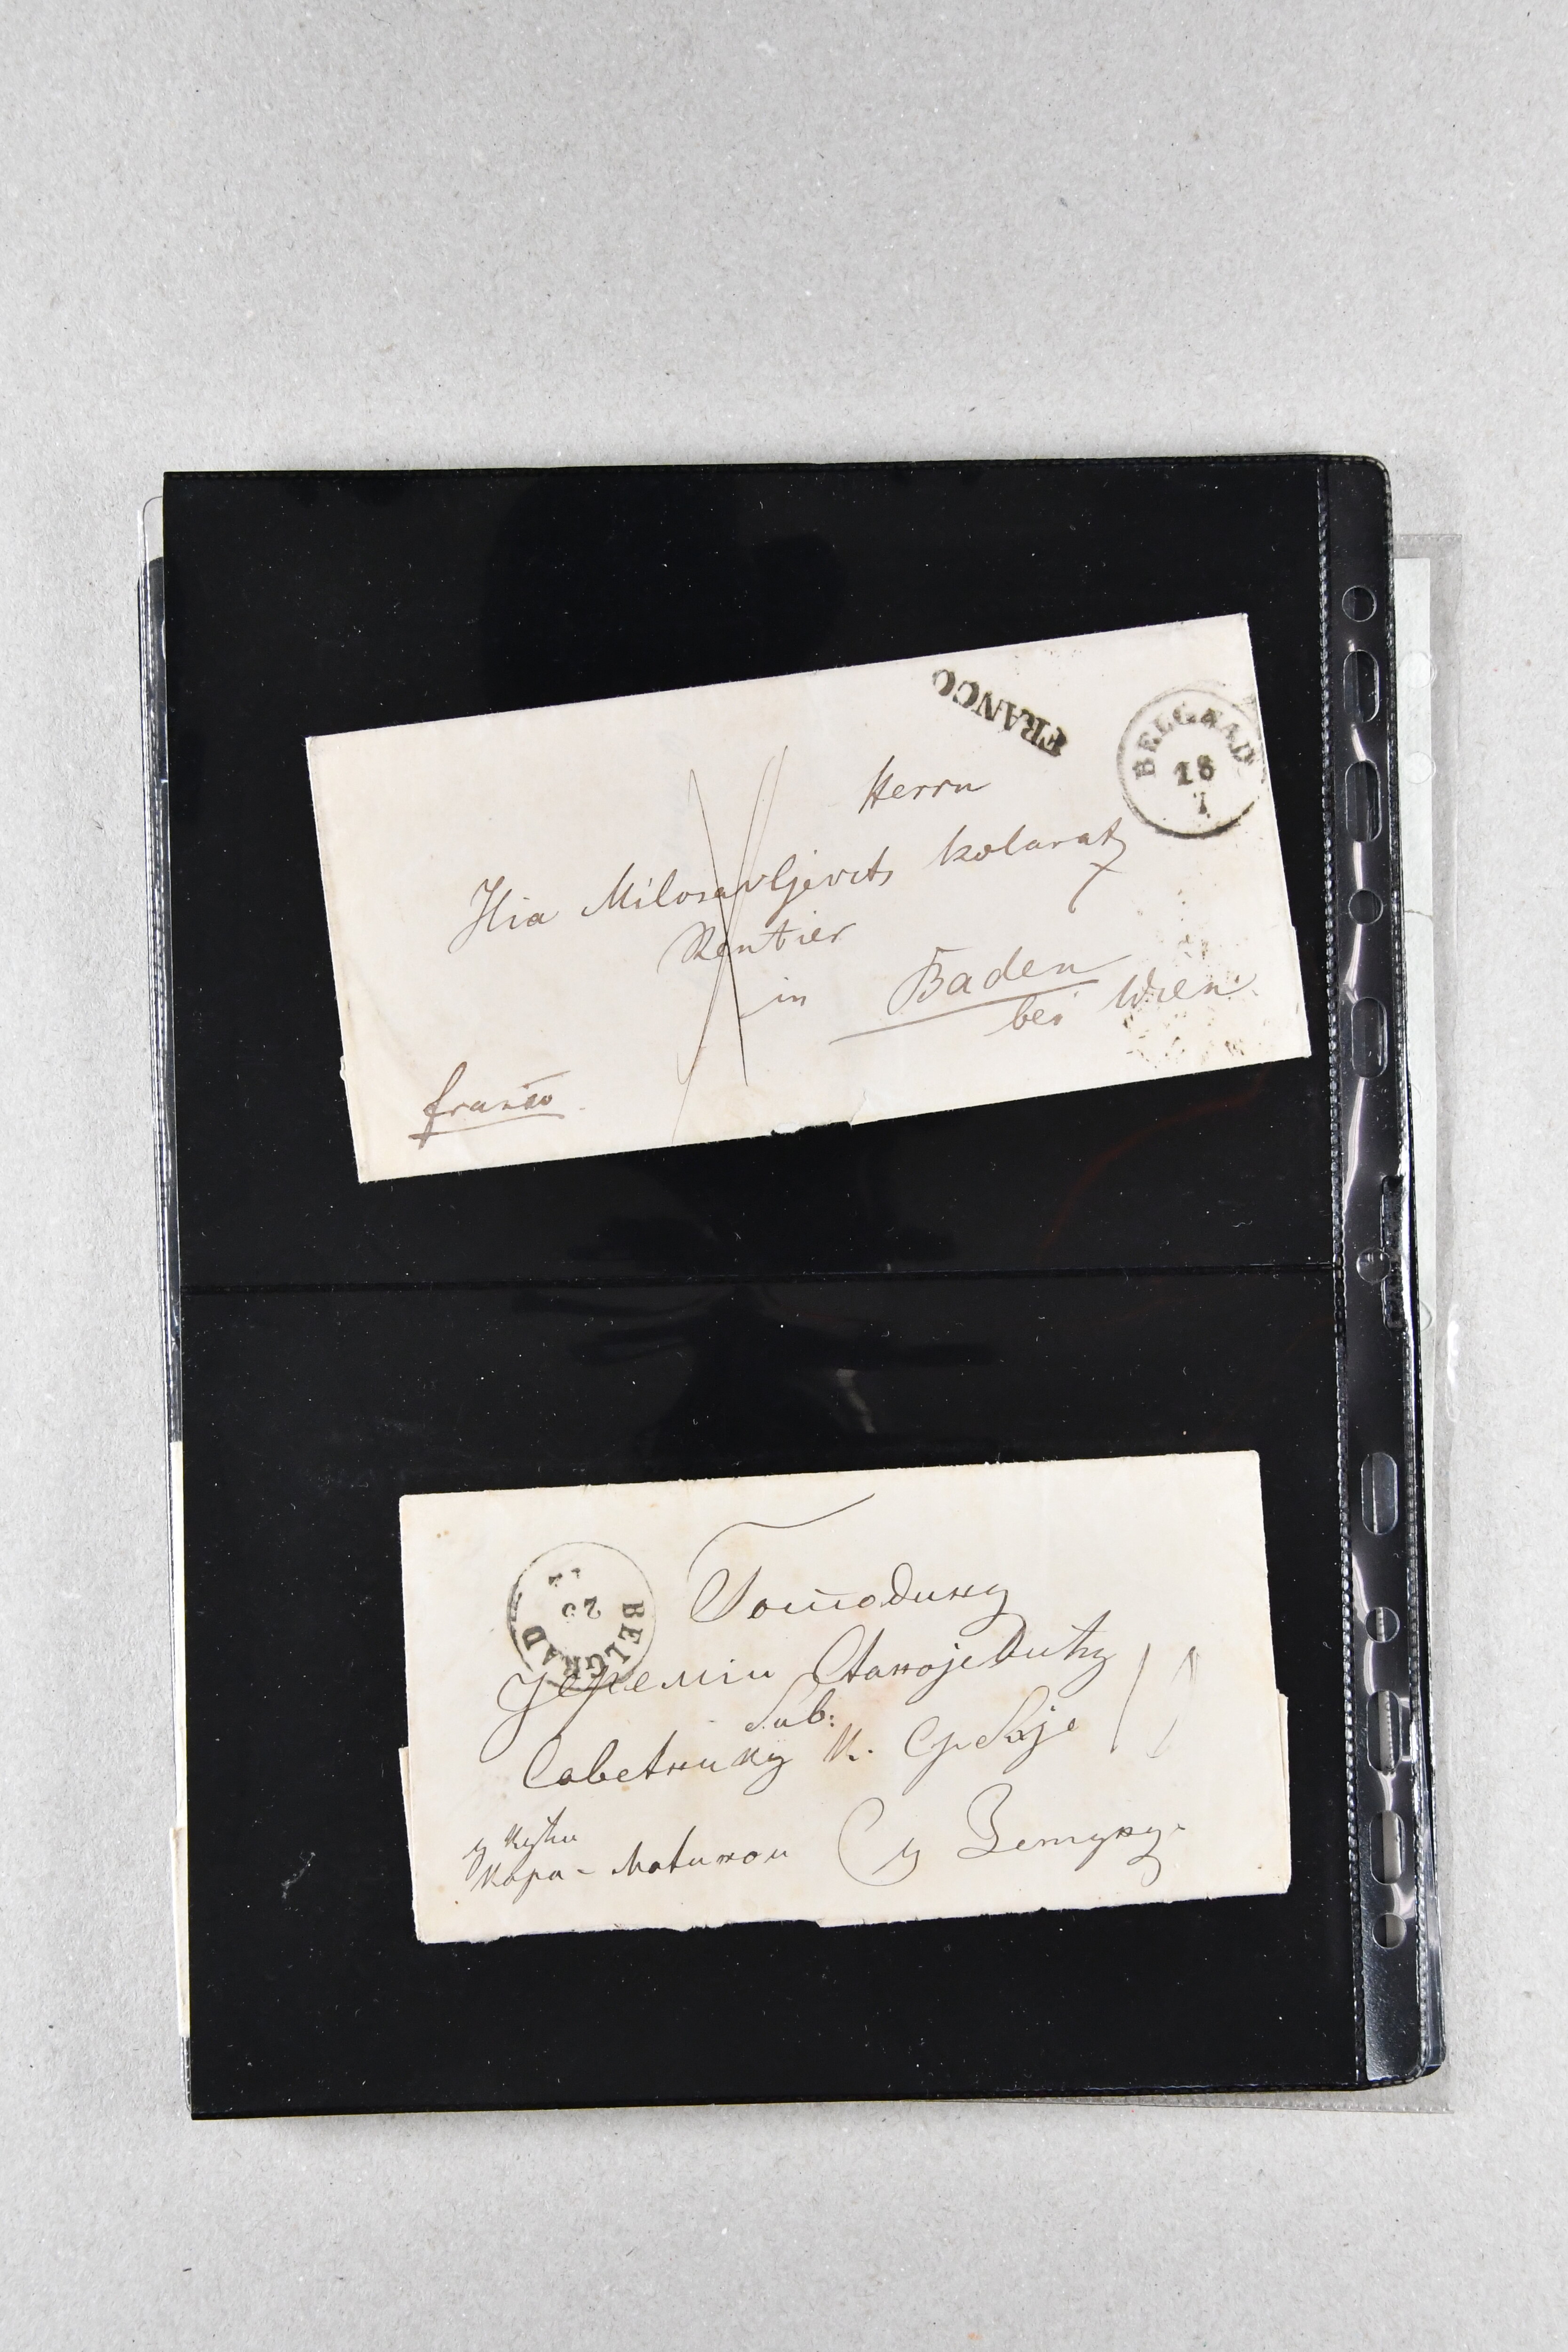 FRANCO
BELGRAD
18
7
Herrn
Ilia Milosavljevits Kolaratz
Rentier
in Baden
bei Wien
franco
BELGRAD
Господину
Јеремiи Станојевићу
Саветнику К. Србије
у кући
Кара-Матинои
у Земуну.